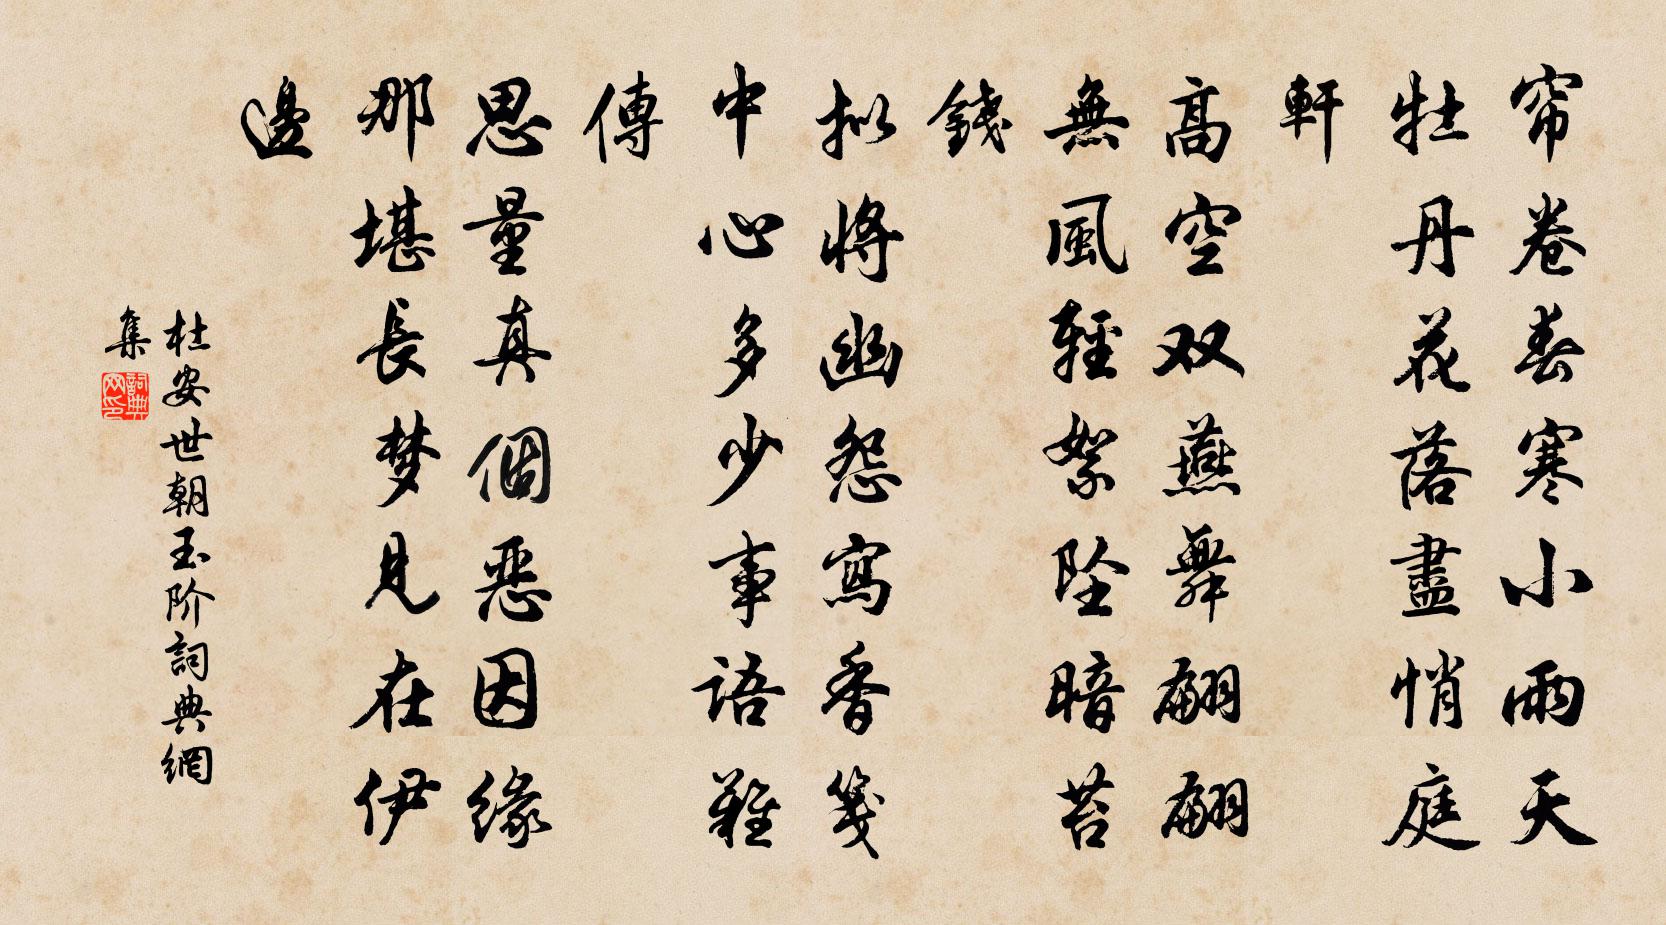 帘卷春寒小雨天
牡丹花落盡悄庭
軒
高空双燕舞翩翩
無風輕絮坠暗苔
錢
拟將幽怨寫香笺
中心多少事語難
傳
思量真個惡因緣
那堪長梦見在伊
邊
杜安世朝玉阶詞典網
集
詞典
网印